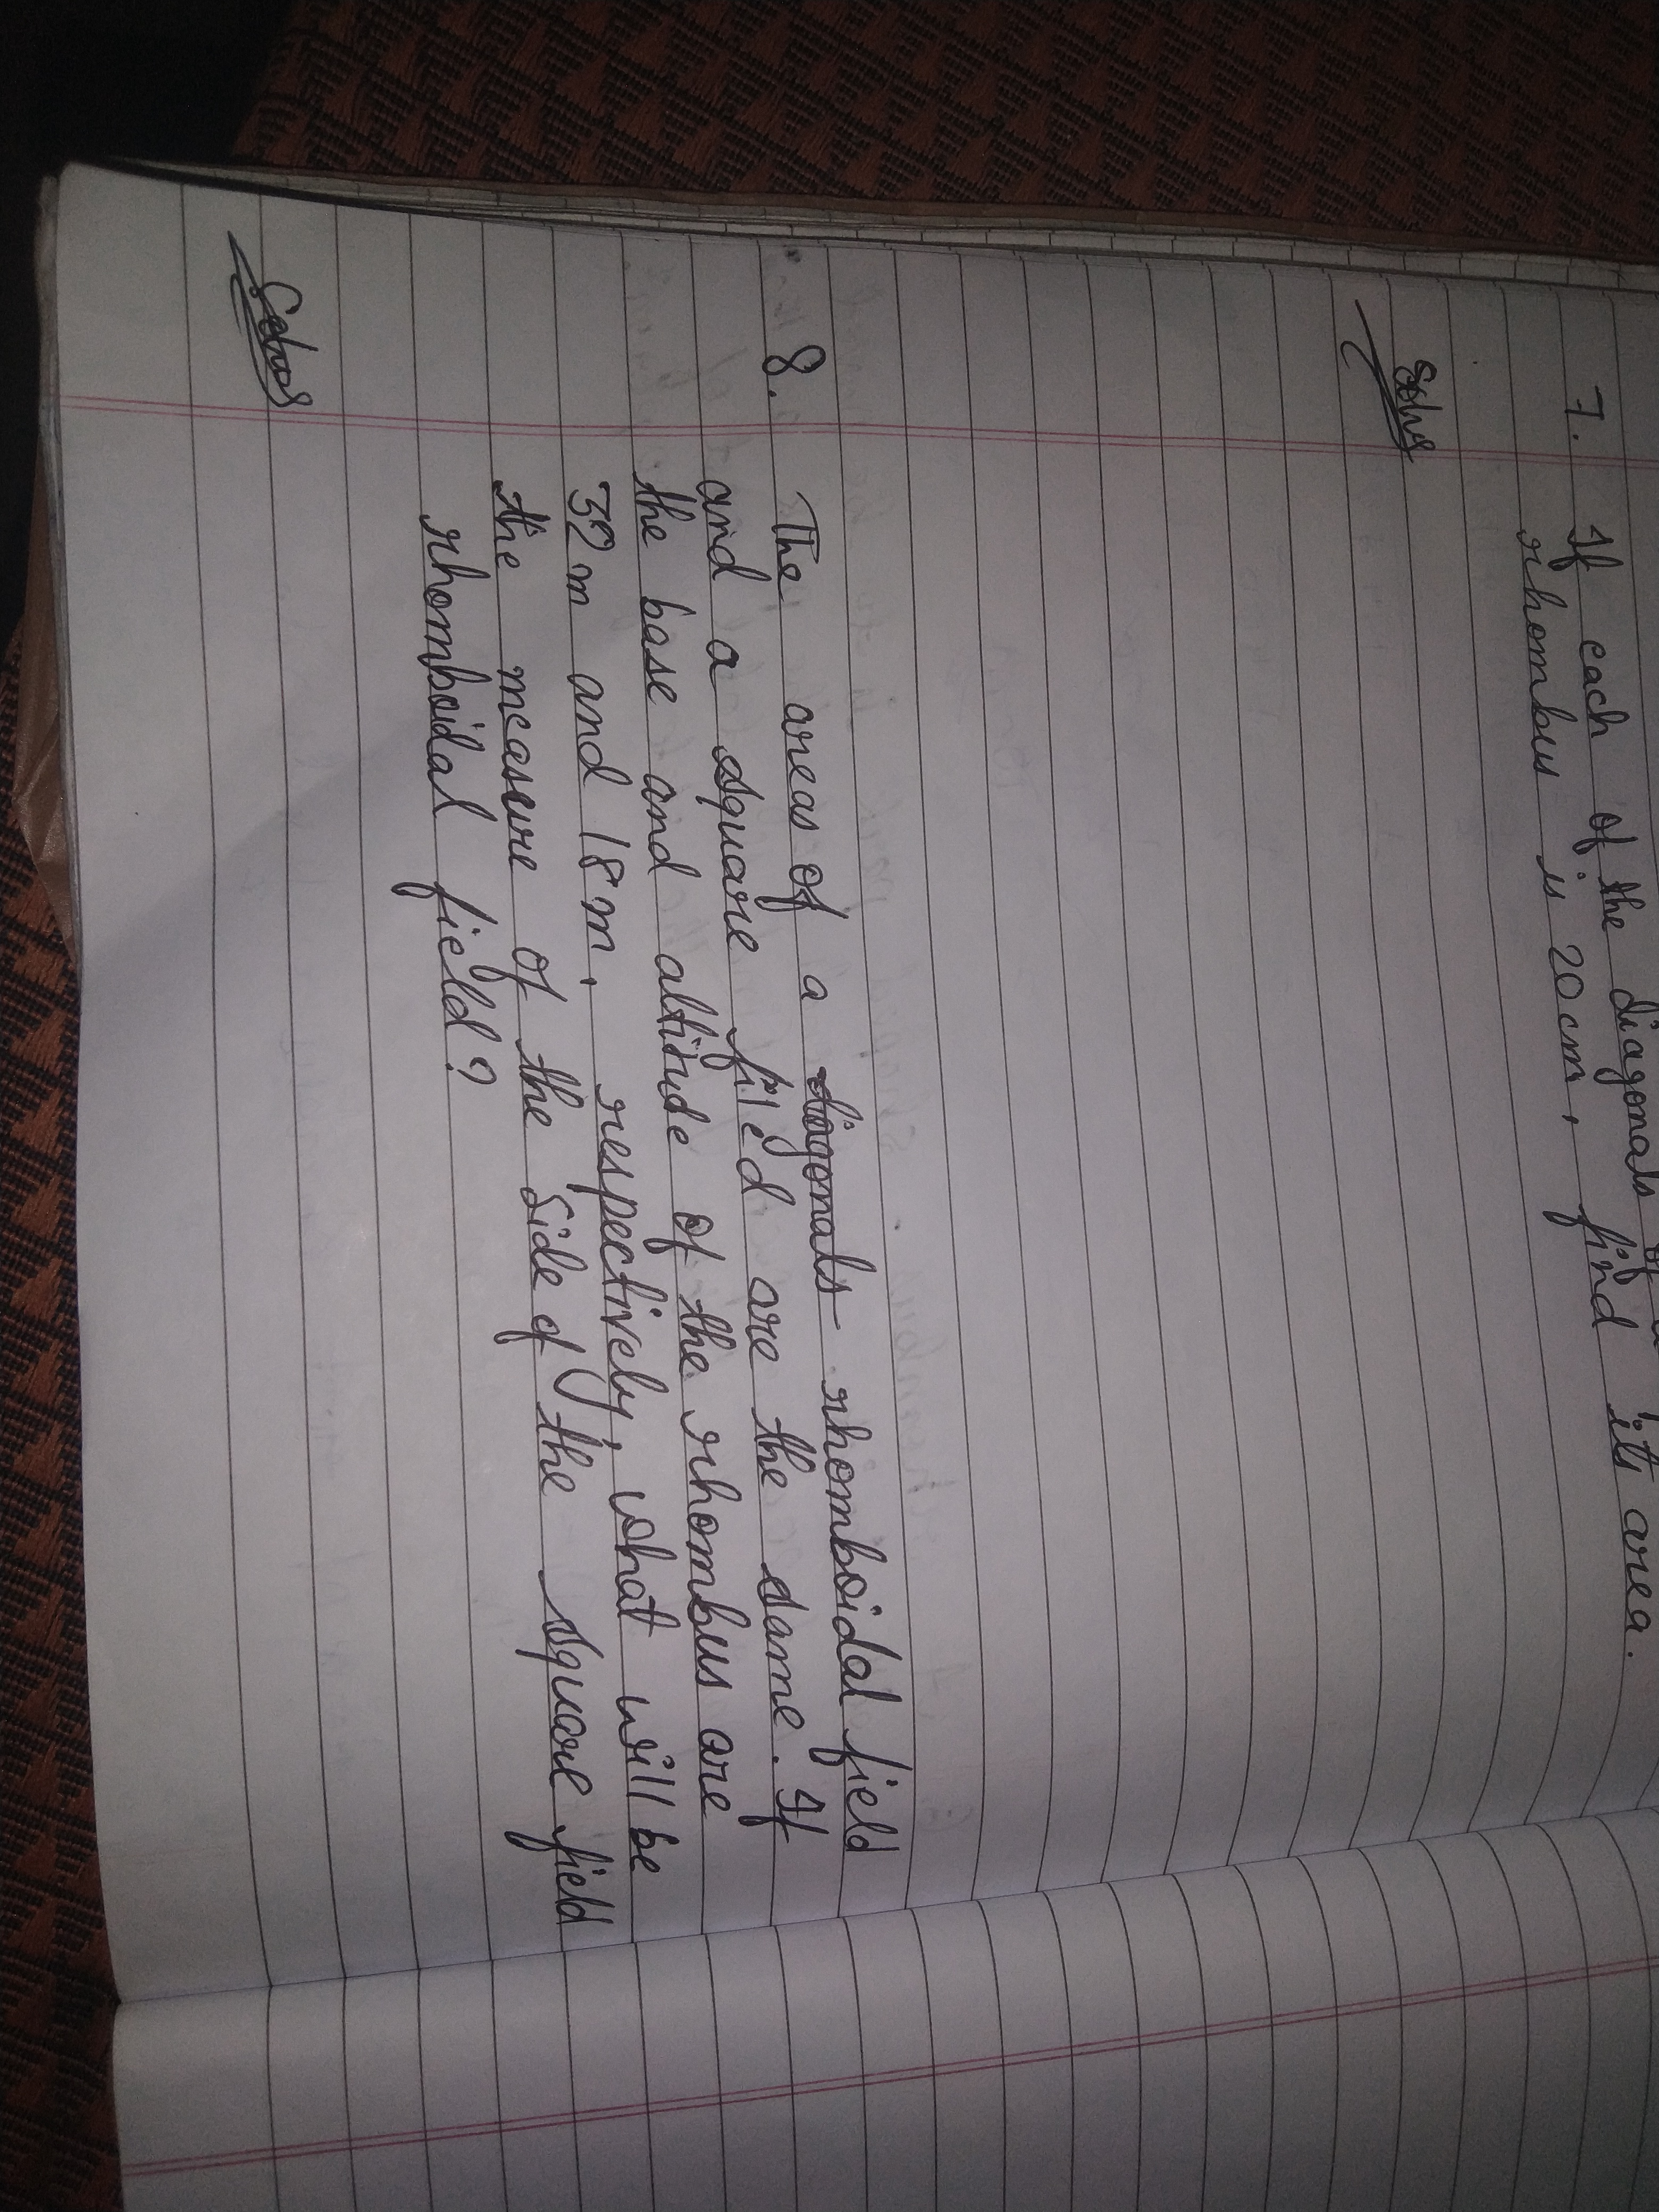 7. If each of the diagonals of a
rhombus is 20cm, find its area.
Solns
8. The areas of a diagonals rhomboidal field
and a square filed are the same. If
the base and altitude of the rhombus are
32m and 18m, respectively, what will be
the measure of the side of the square field
rhomboidal field?